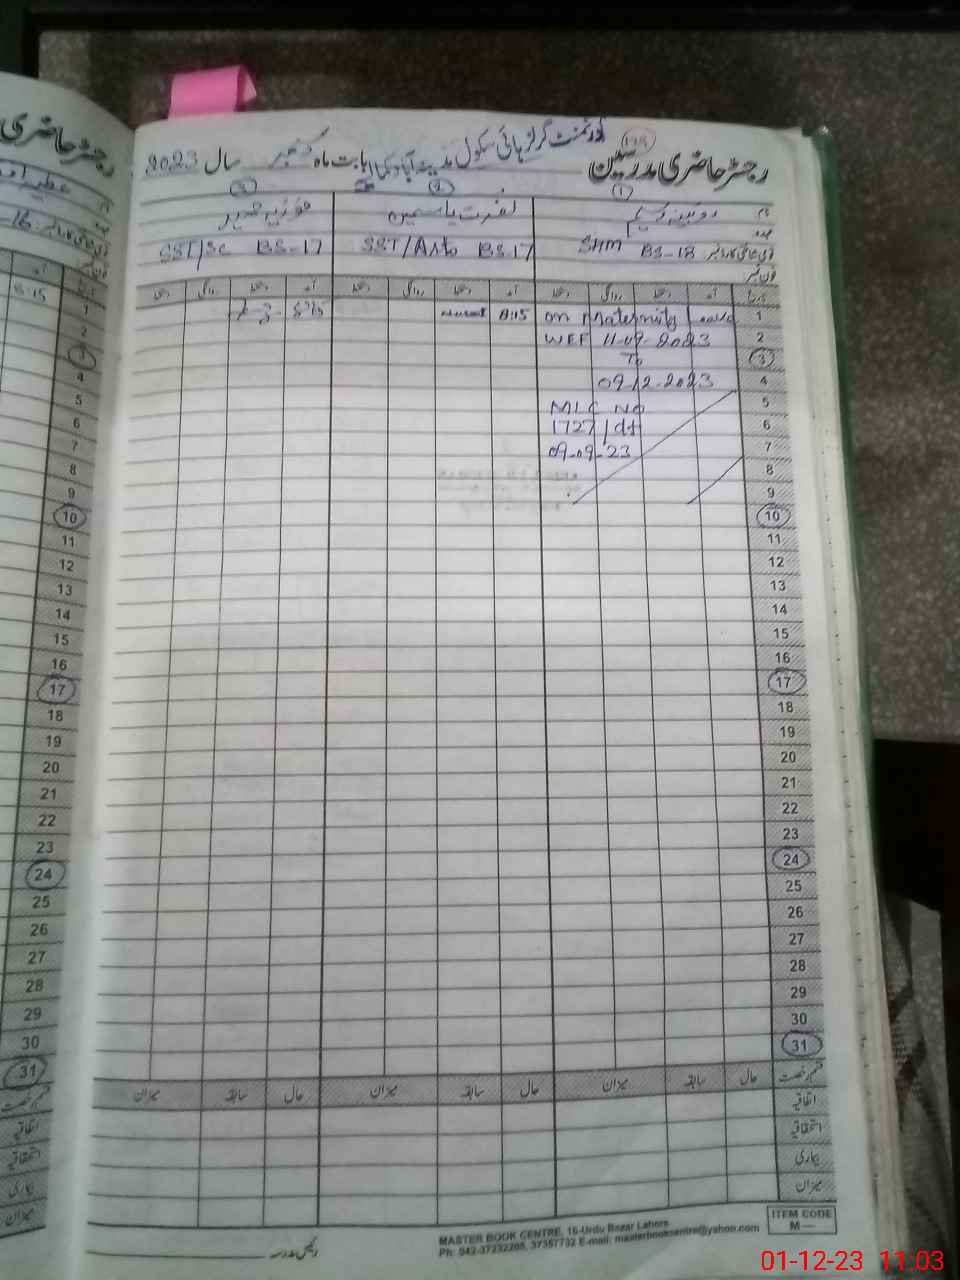 گورنمنٹ گرلز ہائی سکول مدینہ آباد
رجسٹر حاضری مدرسین
بابت ماہ دسمبر سال 2023
روبینہ
نصرت یاسمین
فوزیہ
SHM BS-18
SST/Arts BS 17
SST/SC BS-17
تاریخ آمد دستخط روانگی دستخط آمد دستخط روانگی دستخط آمد دستخط روانگی دستخط
1 on Maternity Leave 8:15
2 WEF 11-09-2023
3 To
4 09-12-2023
5 MLC No
6 1727/dt
7 09-09-23
8
9
10
11
12
13
14
15
16
17
18
19
20
21
22
23
24
25
26
27
28
29
30
31
قسم رخصت حال سابقہ میزان حال سابقہ میزان حال سابقہ میزان
اتفاقیہ
استحقاقیہ
بیماری
میزان
ITEM CODE
M—
MASTER BOOK CENTRE, 16-Urdu Bazar Lahore
Ph: 042-37232205, 37357732 E-mail: masterbookcentre@yahoo.com
رئیس مدرسہ
رجسٹر حاضری
8:15
1
2
3
4
5
6
7
8
9
10
11
12
13
14
15
16
17
18
19
20
21
22
23
24
25
26
27
28
29
30
31
01-12-23 11:03